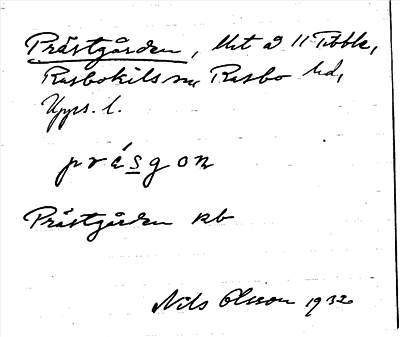 Prästgården, lht å 11 Tibble,
Rasbokils sn Rasbo hd,
Upps. l.
prásgon
Prästgården kb
Nils Olsson 1932